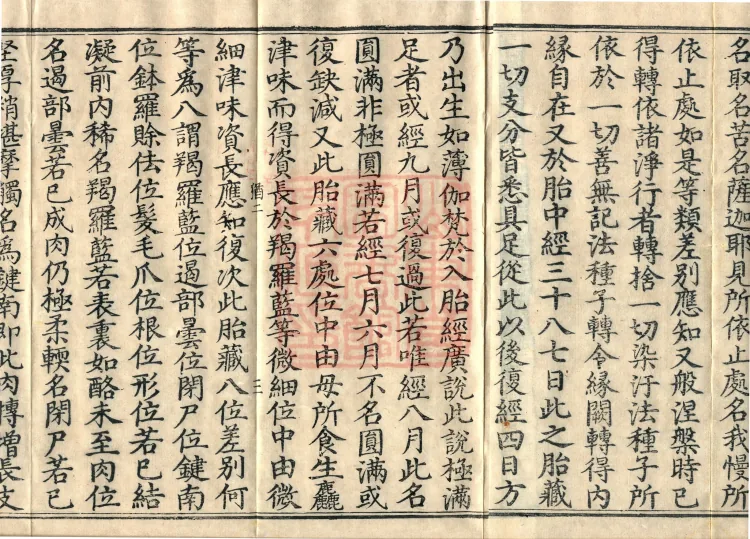 名取名苦名薩迦耶見所依止處名我慢所
依止處如是等類差別應知又般涅槃時已
得轉依諸淨行者轉捨一切染汙法種子所
依於一切善無記法種子轉令縁闕轉得内
縁自在又於胎中經三十八七日此之胎藏
一切支分皆悉具足從此以後復經四日方
乃出生如薄伽梵於入胎經廣說此說極滿
足者或經九月或復過此若唯經八月此名
圓滿非極圓滿若經七月六月不名圓滿或
復缺減又此胎藏六處位中由母所食生麤
津味而得資長於羯羅藍等微細位中由微
細津味資長應知復次此胎藏八位差別何
等爲八謂羯羅藍位遏部曇位閉尸位鍵南
位鉢羅賒佉位髮毛爪位根位形位若已結
凝前内稀名羯羅藍若表裏如酪未至肉位
名遏部曇若已成肉仍極柔輭名閉尸若已
堅厚稍堪摩觸名爲鍵南即此肉摶增長支